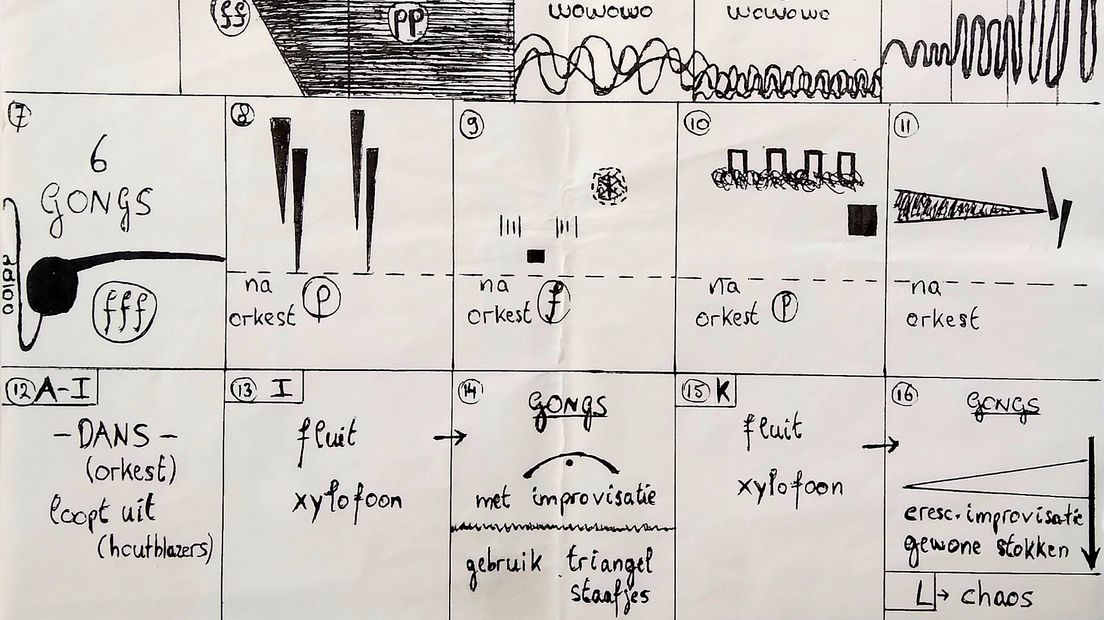 ff
pp
wowowo
wowowo
7
6
GONGS
fff
8
na
orkest p
9
na
orkest f
10
na
orkest p
11
na
orkest
12 A-I
- DANS -
(orkest)
loopt uit
(houtblazers)
13 I
fluit
xylofoon
14
GONGS
met improvisatie
gebruik triangel
staafjes
15 K
fluit
xylofoon
16
GONGS
cresc. improvisatie
gewone stokken
L → chaos